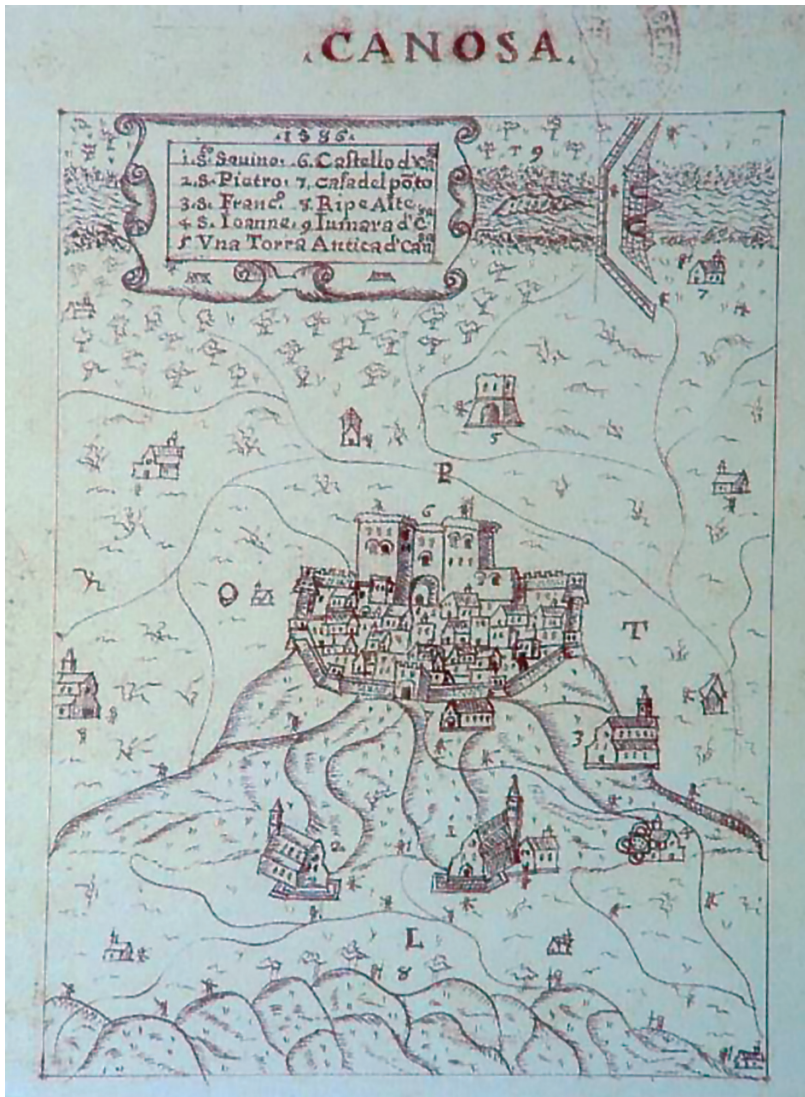 .CANOSA.
.1586.
1. S. Savino. 6. Castello d'
2. S. Pietro. 7. casa del pōto
3. S. Franc.º 8. Ripe Alte
4. S. Ioanne. 9. d'
5 Vna Torra Antica d'Can
9
7
5
P
6
O
T
3
2
1
4
L
8